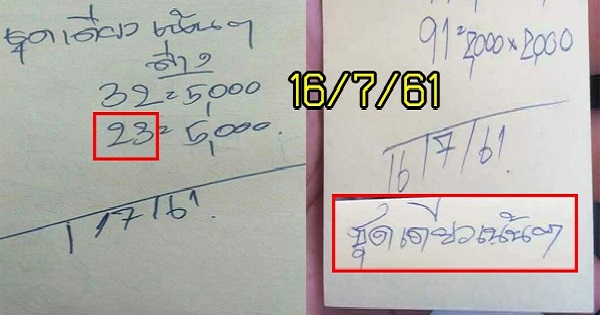 ชุดเดียวเน้นๆ
ล่าง
32=5,000
23=5,000.
1/7/61
16/7/61
91=2,000×2,000
16/7/61
ชุดเดียวเน้นๆ